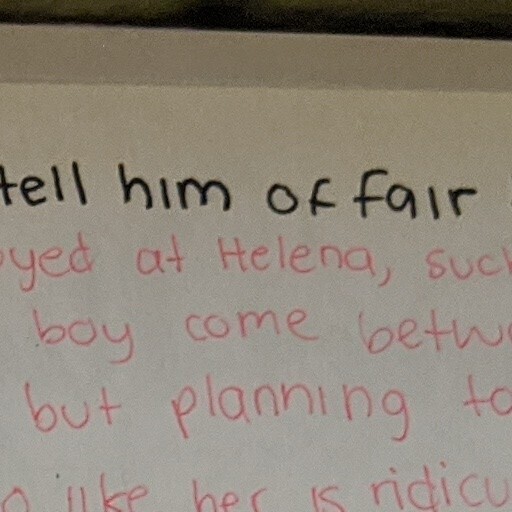 tell him of fair
oyed at Helena, such
boy come betwe
but planning to
like her is ridicu